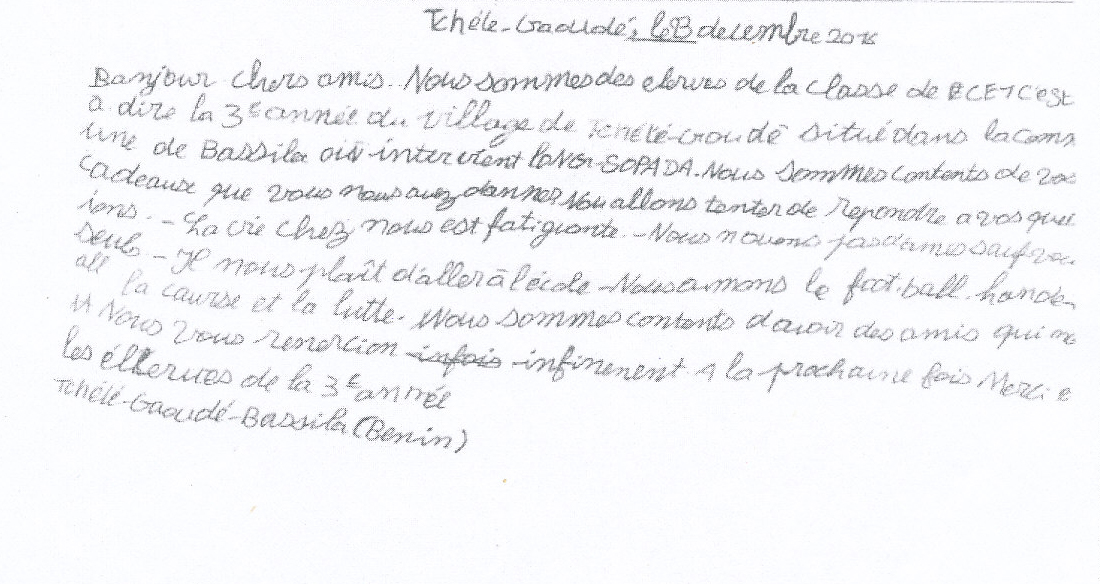 Tchélé-Gaoudé, le 13 decembre 2016
Banjour chers amis. Nous sommes des eleves de la classe de ECE1 C'est
à dire la 3e année du village de Tchélé-Gaoudé situé dans la com
une de Bassila où intervient l'ONG-SOPADA. Nous sommes contents de vos
cadeause que vous nous avez donner Nou allons tenter de repondre a vos ques
ions. - La vie chez nous est fatigante. - Nous n'avons pas d'ames sauf vou
seuls. - Il nous plaît d'aller à l'école - Nous aimons le foot-ball. hande-
all la caurse et la lutte. Nous sommes contents d'avoir des amis qui no
Nous vous remercion infinement. A la prochaine fois Merci e
les élherves de la 3e année
Tchélé-Gaoudé-Bassila (Benin)